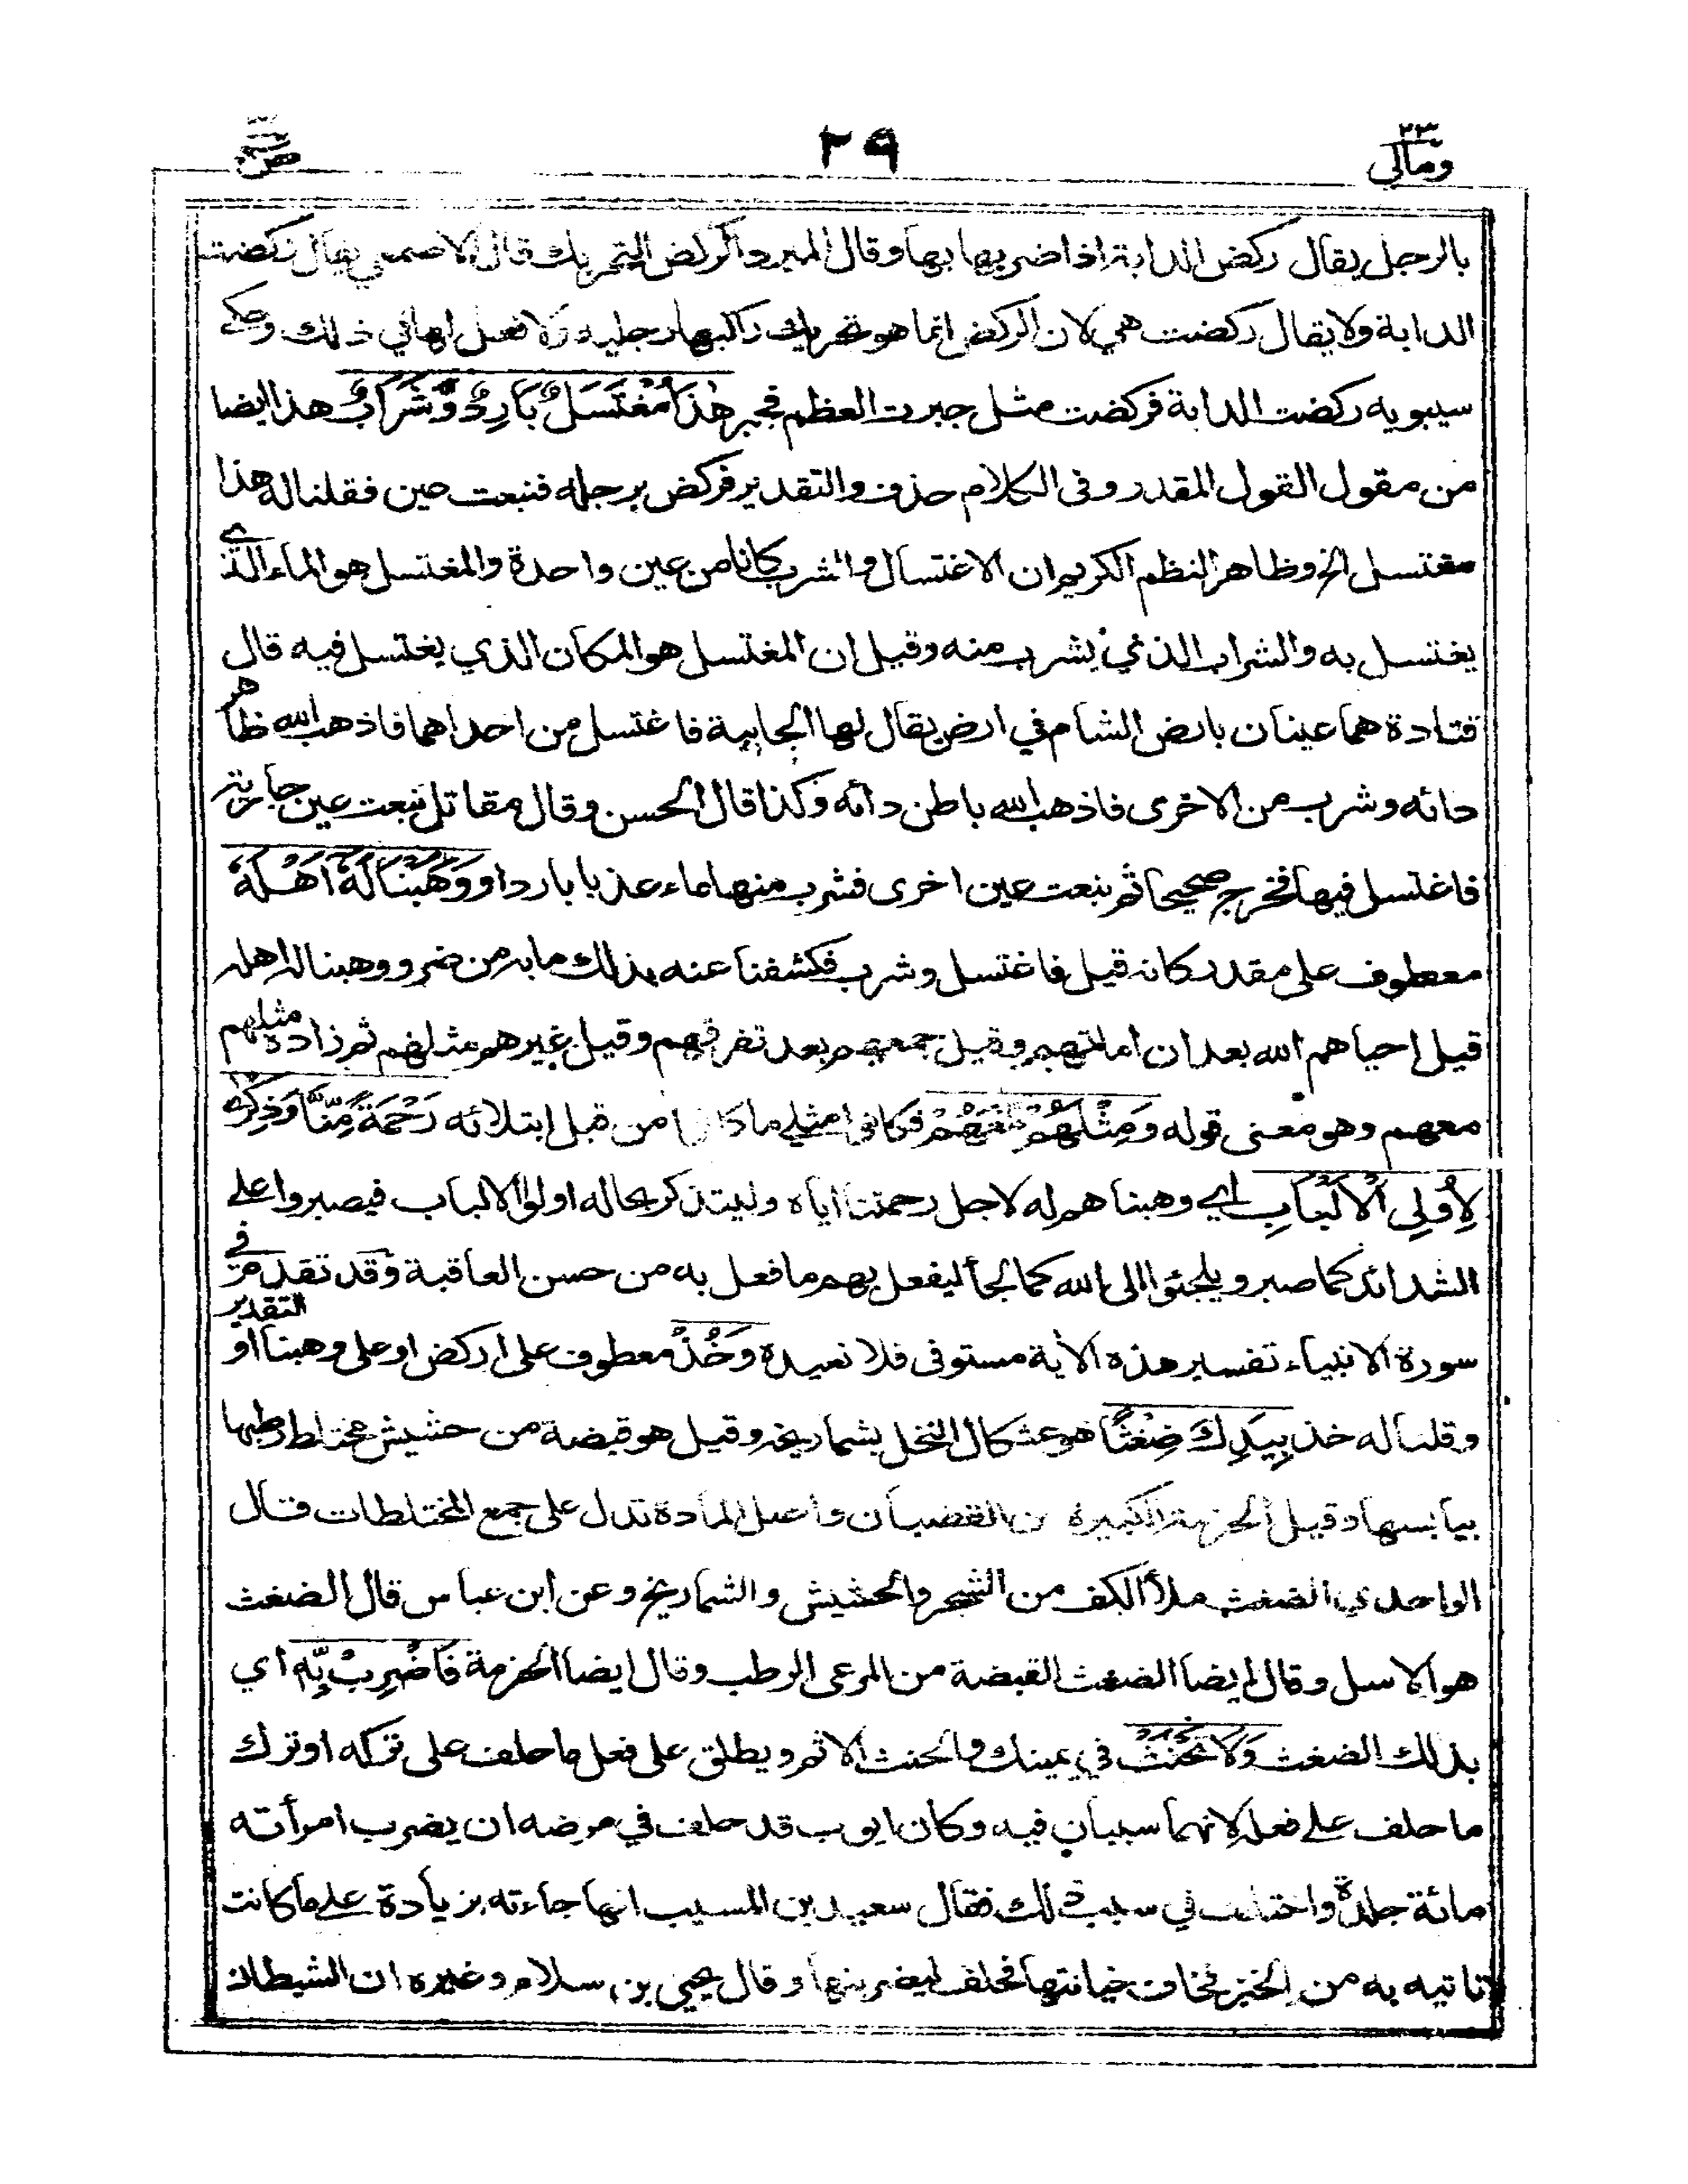 ٢٣ ومالي ٢٩ ص
بالرجل يقال ركض الدابة اذا ضربها بها وقال المبرد الركض التحريك قال الاصمعي يقال ركضت
الدابة ولا يقال ركضت هي لان الركض انما هو تحريك راكبها رجليه ولا فعل لها في ذلك وحكى
سيبويه ركضت الدابة فركضت مثل جبرت العظم فجبر هٰذَا مُغْتَسَلٌ بَارِدٌ وَّشَرَابٌ هذا ايضا
من مقول القول المقدر وفى الكلام حذف والتقدير فركض برجله فنبعت عين فقلنا له هذا
مغتسل الخ وظاهر النظم الكريم ان الاغتسال والشرب كانا من عين واحدة والمغتسل هو الماء الذي
يغتسل به والشراب الذي يشرب منه وقيل ان المغتسل هو المكان الذي يغتسل فيه قال
قتادة هما عينان بارض الشام في ارض يقال لها الجابية فاغتسل من احداهما فاذهب الله ظاهر
دائه وشرب من الاخرى فاذهب الله باطن دائه وكذا قال الحسن وقال مقاتل نبعت عين جارية
فاغتسل فيها فخرج صحيحا ثم نبعت عين اخرى فشرب منها ماء عذبا باردا ووَوَهَبْنَا لَهٗٓ اَهْلَهٗ
معطوف على مقدر كانه قيل فاغتسل وشرب فكشفنا عنه بذلك ما به من ضر ووهبنا له اهله
قيل احياهم الله بعد ان اماتهم وقيل جمعهم بعد تفرقهم وقيل غيرهم مثلهم ثم زاده مثلهم
معهم وهو معنى قوله وَمِثْلَهُمْ مَّعَهُمْ فكانوا مثلي ما كانوا من قبل ابتلائه رَحْمَةً مِّنَّا وَذِكْرٰى
لِاُولِى الْاَلْبَابِ اي وهبناهم له لاجل رحمتنا اياه وليتذكر بحاله اولوا الالباب فيصبروا على
الشدائد كما صبر ويلجئوا الى الله كما لجأ ليفعل بهم ما فعل به من حسن العاقبة وقد تقدم في
سورة الانبياء تفسير هذه الآية مستوفى فلا نعيدة وَخُذْ معطوف على اركض او على وهبنا او التقدير
وقلنا له خذ بِيَدِكَ ضِغْثًا هو عثكال النخل بشماريخه وقيل هو قبضة من حشيش مختلط رطبها
بيابسها وقيل الحزمة الكبيرة من القضبان واصل المادة تدل على جمع المختلطات قال
الواحدي الضغث ملأ الكف من الشجر والحشيش والشماريخ وعن ابن عباس قال الضغث
هو الاسل وقال ايضا الضغث القبضة من المرعى الرطب وقال ايضا الحزمة فَاضْرِبْ بِّهٖ اي
بذلك الضغث وَلَا تَحْنَثْ في يمينك والحنث الاثم ويطلق على فعل ما حلف على تركه او ترك
ما حلف على فعله لانهما سببان فيه وكان ايوب قد حلف في مرضه ان يضرب امرأته
مائة جلدة واختلف في سبب ذلك فقال سعيد بن المسيب انها جاءته بزيادة على ما كانت
تاتيه به من الخبز فخاف خيانتها فحلف ليضربنها وقال يحيى بن سلام وغيره ان الشيطان